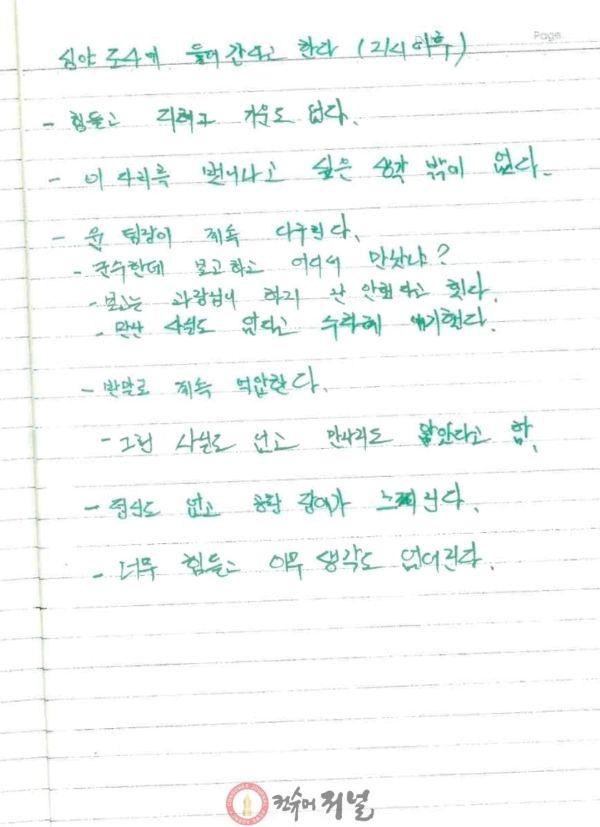 심야 조사에 들어간다고 한다 (21시 이후)
Page
- 힘들고 지치고 기운도 없다.
- 이 자리를 벗어나고 싶은 생각 밖이 없다.
- 윤 팀장이 계속 다구친다.
- 군수한데 보고하고 어디서 만낫냐?
- 보고는 과장님이 하지 난 안했다고 했다.
- 만난 사실도 없다고 수차례 얘기했다.
- 반말로 계속 억압한다.
- 그런 사실도 없고 만나지도 않았다고 함.
- 정신도 없고 공황
- 너무 힘들고 아무 생각도 없어진다.
컨슈머저널